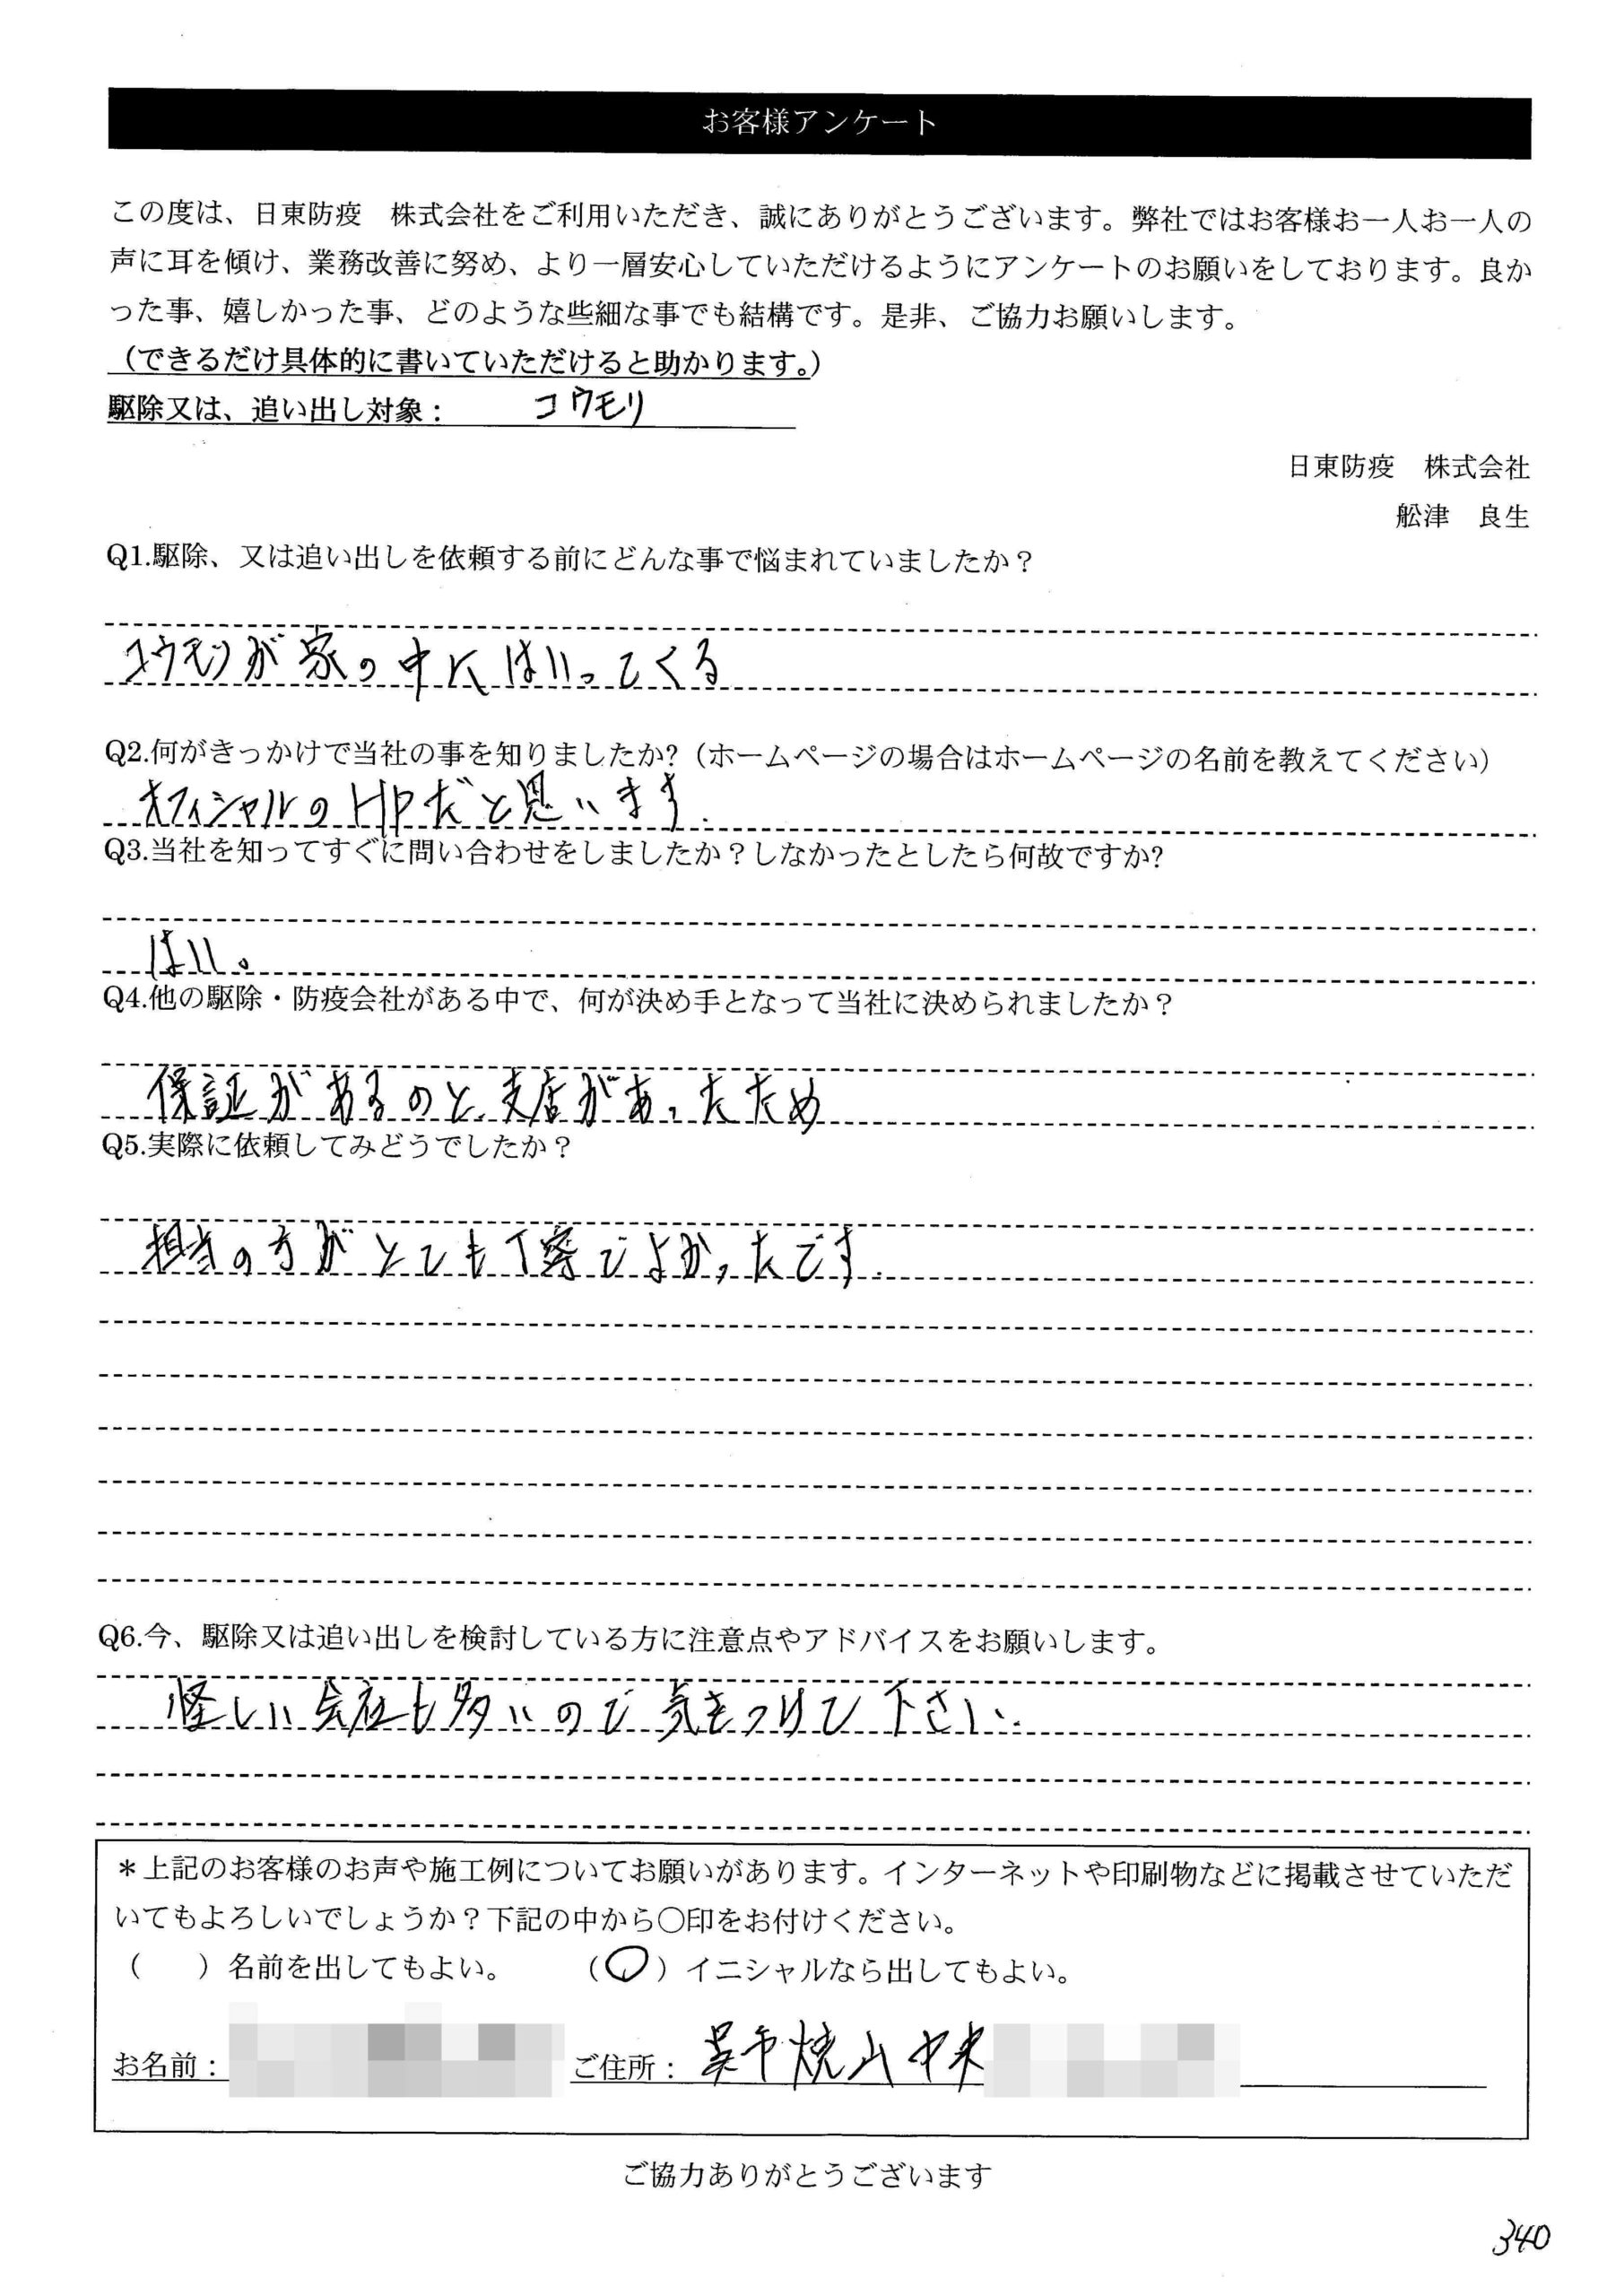 お客様アンケート
この度は、日東防疫　株式会社をご利用いただき、誠にありがとうございます。弊社ではお客様お一人お一人の
声に耳を傾け、業務改善に努め、より一層安心していただけるようにアンケートのお願いをしております。良か
った事、嬉しかった事、どのような些細な事でも結構です。是非、ご協力お願いします。
（できるだけ具体的に書いていただけると助かります。）
駆除又は、追い出し対象：　コウモリ
日東防疫　株式会社
舩津　良生
Q1.駆除、又は追い出しを依頼する前にどんな事で悩まれていましたか？
コウモリが家の中にはいってくる
Q2.何がきっかけで当社の事を知りましたか?（ホームページの場合はホームページの名前を教えてください）
オフィシャルのHPだと思います.
Q3.当社を知ってすぐに問い合わせをしましたか？しなかったとしたら何故ですか?
はい。
Q4.他の駆除・防疫会社がある中で、何が決め手となって当社に決められましたか？
保証があるのと、支店があったため
Q5.実際に依頼してみどうでしたか？
担当の方がとても丁寧でよかったです.
Q6.今、駆除又は追い出しを検討している方に注意点やアドバイスをお願いします。
怪しい会社も多いので気をつけて下さい.
＊上記のお客様のお声や施工例についてお願いがあります。インターネットや印刷物などに掲載させていただ
いてもよろしいでしょうか？下記の中から〇印をお付けください。
（　　）名前を出してもよい。　　（〇）イニシャルなら出してもよい。
お名前：　ご住所：呉市焼山中央
ご協力ありがとうございます
340